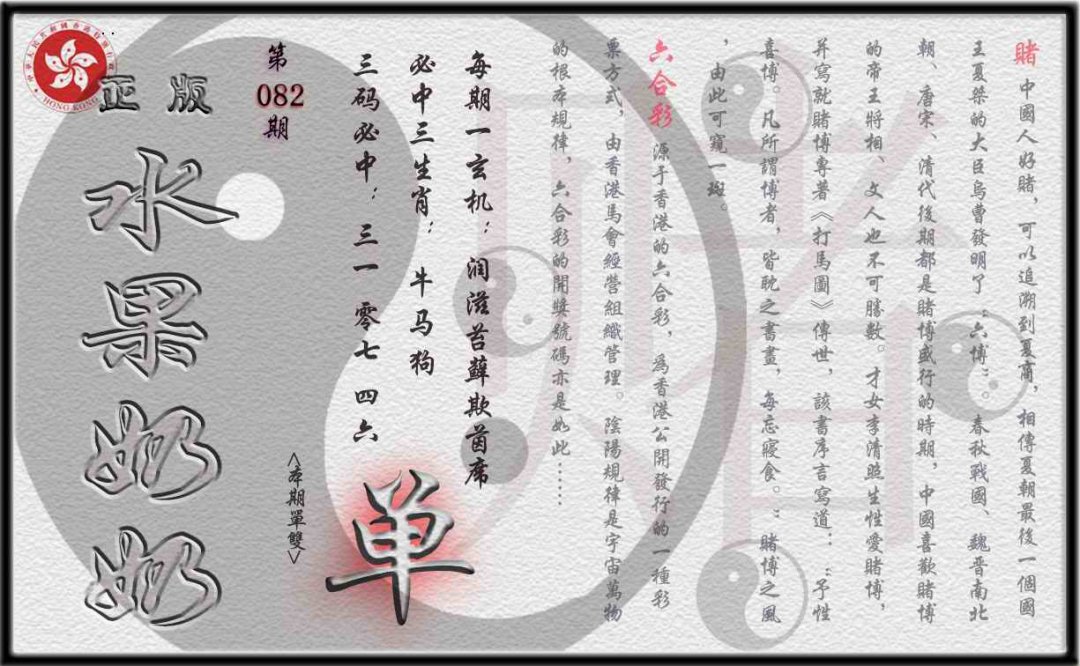 賭 中國人好賭，可以追溯到夏商，相傳夏朝最後一個國
王夏桀的大臣烏曹發明了“六博”。春秋戰國、魏晉南北
朝、唐宋、清代後期都是賭博盛行的時期，中國喜歡賭博
的帝王將相、文人也不可勝數。才女李清照生性愛賭博，
并寫就賭博專著《打馬圖》傳世，該書序言寫道：“予性
喜博。凡所謂博者，皆耽之書畫，每忘寢食。”賭博之風
，由此可窺一斑。
六合彩 源于香港的六合彩，為香港公開發行的一種彩
票方式，由香港馬會經營組織管理。陰陽規律是宇宙萬物
的根本規律，六合彩的開獎號碼亦是如此……
每期一玄机：润滋苔藓欺茵席
必中三生肖：牛马狗
三码必中：三一 零七 四六
单
<本期單雙>
第
082
期
正版
水果奶奶
HONG KONG